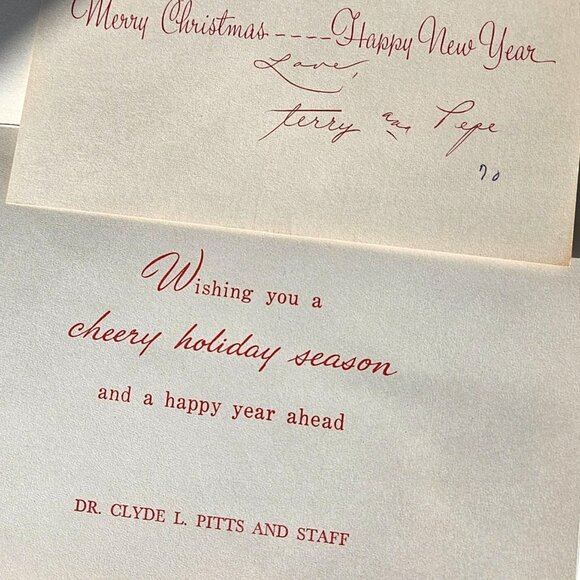 Merry Christmas ---- Happy New Year
Love,
Terry and Pepe
70
Wishing you a
cheery holiday season
and a happy year ahead
DR. CLYDE L. PITTS AND STAFF